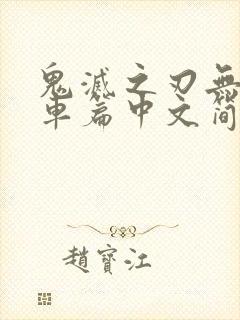 鬼滅之刃無
車篇中文簡
趙寶江